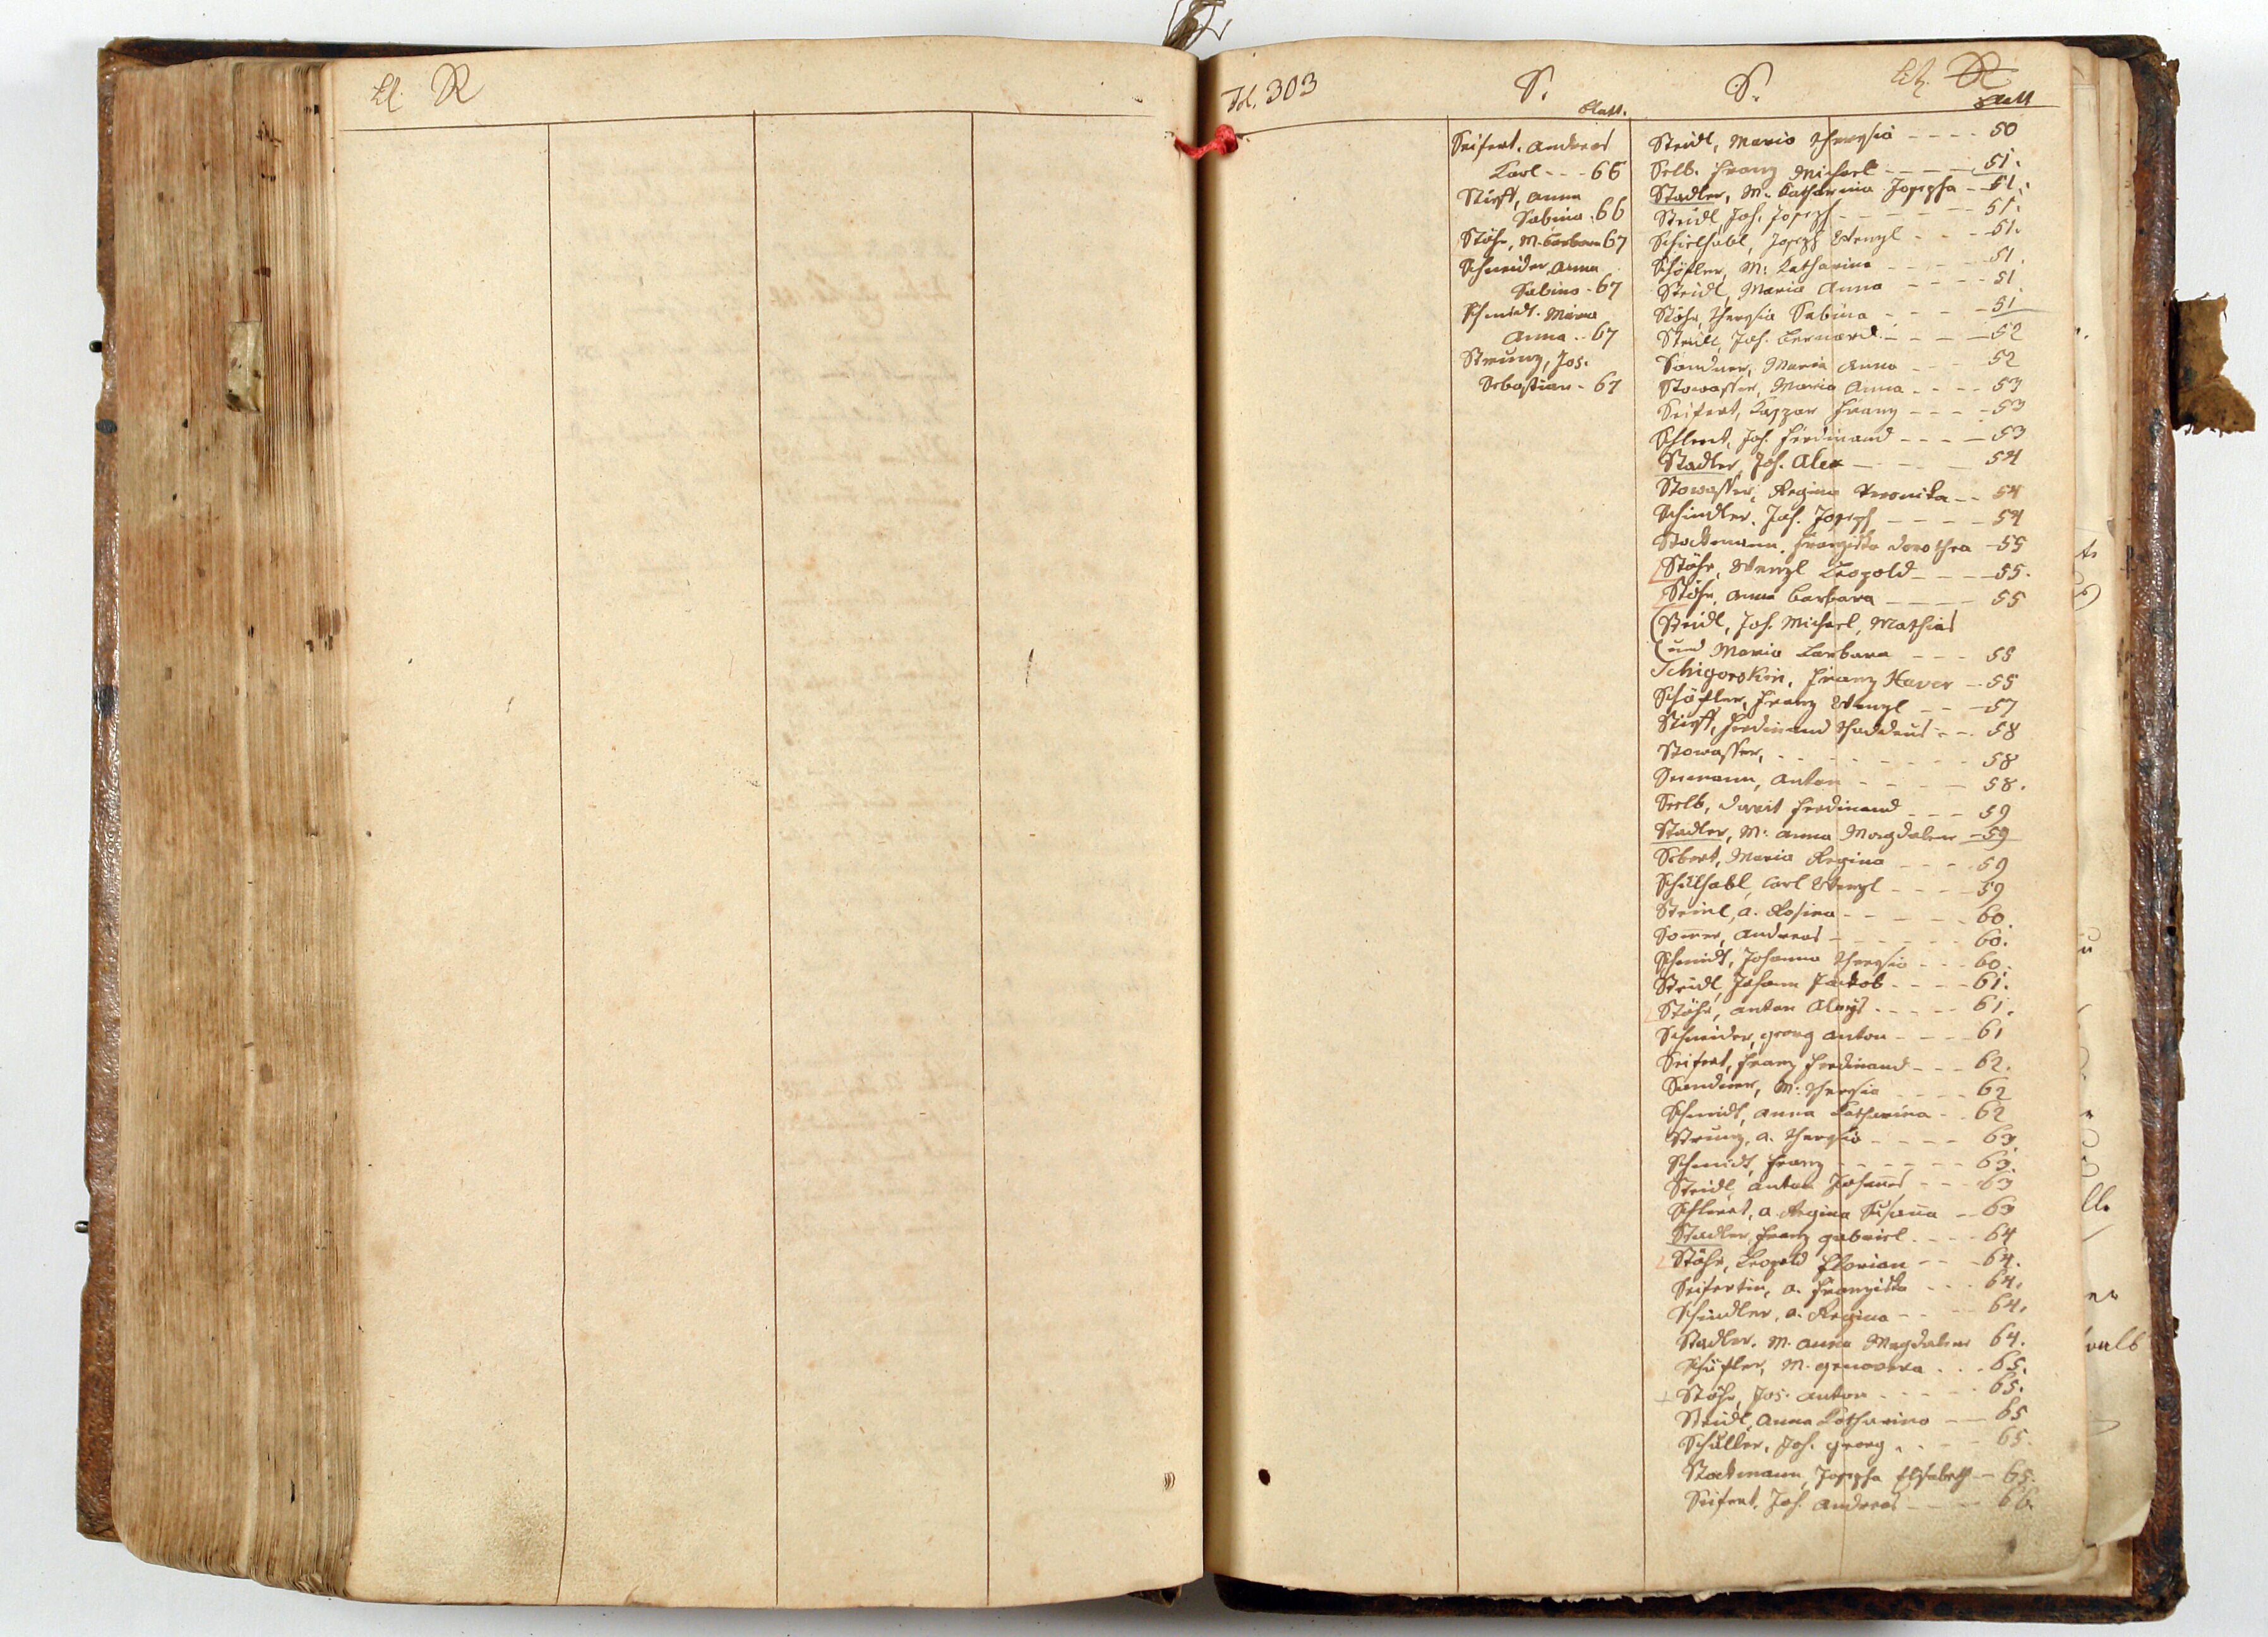 Lit. R
Fol. 303
S.
Blatt.
Seifert. Andreas
Karl - - - 66
Stirft, Anna
Sabina - 66
Stöhr, M. Barbara 67
Schneider Anna
Sabina - 67
Schmidt. Maria
Anna - - 67
Strunz, Jos.
Sebastian - 67
S.
Lit. R
Blatt
Steidl, Maria Theresia - - - - 50
Selb. Franz Michael - - - - 51.
Stadler, M. Katharina Josepha - - 51.
Steidl, Joh. Joseph - - - - 51.
Schielhabl, Joseph Wenzl - - - 51.
Schöfler, M: Katharina - - - - 51.
Steidl, Maria Anna - - - - 51
Stöhr, Theresia Sabina - - - - 51
Steidl, Joh. Bernard - - - - 52
Sandner, Maria Anna - - - 52
Stowasser, Maria Anna - - - - 53
Seifert, Kaspar Franz - - - - 53
Schlent, Joh. Ferdinand - - - - 53
Stadler, Joh. Alex - - - - 54
Stowasser, Regina Veronika - - 54
Schindler, Joh. Joseph - - - - 54
Stockmann. Franziska Dorothea - 55
Stöhr, Wenzl Leopold - - - - 55.
Stöhr, Anna Barbara - - - - 55
Steidl, Joh. Michael, Mathias
und Maria Barbara - - - 55
Schigorskin, Franz Xaver - 55
Schöfler, Franz Wenzl - - - 57
Stirft, Ferdinand Thaddeus - - 58
Stowasser, - - - - - - - - 58
Seemann, Anton - - - - 58.
Seelb, David Ferdinand - - - 59
Stadler, M: Anna Magdalena - 59
Sebert, Maria Regina - - - 59
Schilhabl, Carl Wenzl - - - - 59
Steinl, A. Rosina - - - - - 60.
Somer, Andreas - - - - - 60.
Schmidt, Johanna Theresia - - - 60.
Steidl, Johann Jackob - - - - 61.
Stöhr, Anton Aloys - - - - - 61.
Schneider, Georg Anton - - - - 61
Seifert, Franz Ferdinand - - - 62.
Sandner, M: Theresia - - - - 62
Schmidt, Anna Katharina - - 62
Strunz, A. Theresia - - - - 63
Schmidt, Franz - - - - - - 63.
Steidl, Anton Johannes - - - 63
Schlent, A. Regina Susana - - 63
Stadler, Franz Gabriel - - - - 64
Stöhr, Leopold Florian - - - 64.
Seifertin, A. Franziska - - - 64.
Schindler, A. Regina - - 64.
Stadler, M. Anna Magdalena 64.
Schöfler, M. Genoveva . . . 65.
Stöhr, Jos. Anton - - - - - 65.
Steidl, Anna Katharina - - - 65
Schüller, Joh. Georg . - - - 65.
Stockmann, Josepha Elisabeth - - 65.
Seifert, Joh. Andreas - - - - 66.